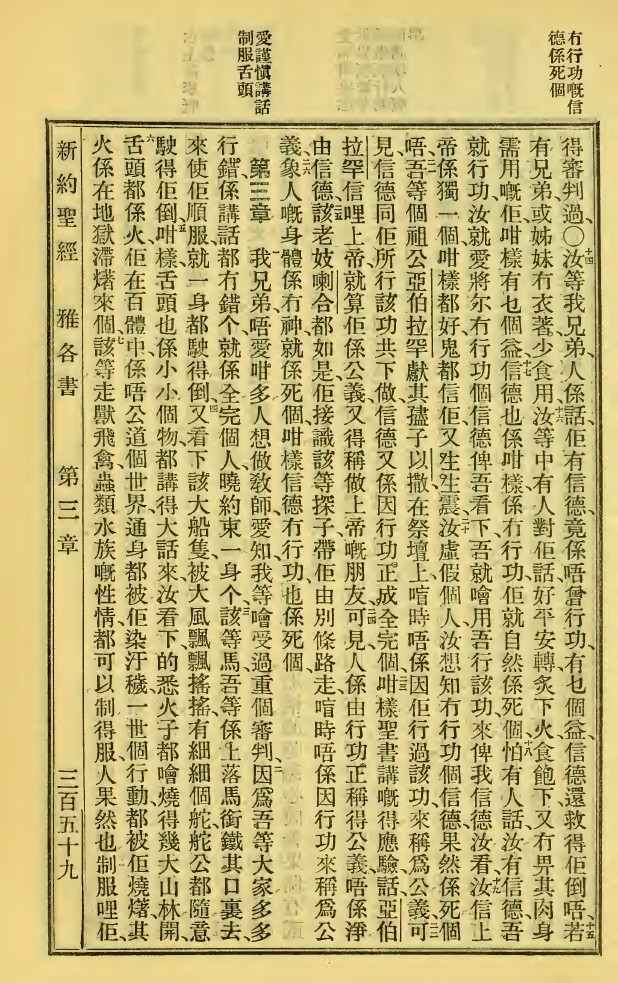 冇行功嘅信
德係死個
愛謹愼講話
制服舌頭
得審判過〇十四汝等我兄弟人係話佢有信德竟係唔曾行功有乜個益信德還救得佢倒唔十五若
有兄弟或姊妹冇衣著少食用十六汝等中有人對佢話好平安轉炙下火食飽下又冇畀其肉身
需用嘅佢咁樣有乜個益十七信德也係咁樣係冇行功佢就自然係死個十八怕有人話汝有信德吾
就行功汝就愛將尔冇行功個信德俾吾看下吾就噲用吾行該功來俾我信德汝看十九汝信上
帝係獨一個咁樣都好鬼都信佢又生生震二十汝虛假個人汝想知冇行功個信德果然係死個
唔二一吾等個祖公亞伯拉罕獻其孻子以撒在祭壇上喧時唔係因佢行過該功來稱爲公義二二可
見信德同佢所行該功共下做信德又係因行功正成全完個二三咁樣聖書講嘅得應驗話亞伯
拉罕信哩上帝就算佢係公義又得稱做上帝嘅朋友二四可見人係由行功正稱得公義唔係淨
由信德二五該老妓喇合都如是佢接識該等探子帶佢由別條路走喧時唔係因行功來稱爲公
義二六象人嘅身體係冇神就係死個咁樣信德冇行功也係死個
第三章　一我兄弟唔愛咁多人想做敎師愛知我等噲受過重個審判二因爲吾等大家多多
行錯係講話都冇錯个就係全完個人曉約束一身个三該等馬吾等係上落馬銜鐵其口裏去
來使佢順服就一身都駛得倒四又看下該大船隻被大風飄飄搖搖有細細個舵舵公都隨意
駛得佢倒五咁樣舌頭也係小小個物都講得大話來汝看下的悉火子都噲燒得幾大山林開
六舌頭都係火佢在百體中係唔公道個世界通身都被佢染汗穢一世個行動都被佢燒㷮其
火係在地獄滯㷮來個七該等走獸飛禽蟲類水族嘅性情都可以制得服人果然也制服哩佢
新約聖經　雅各書　第三章　三百五十九